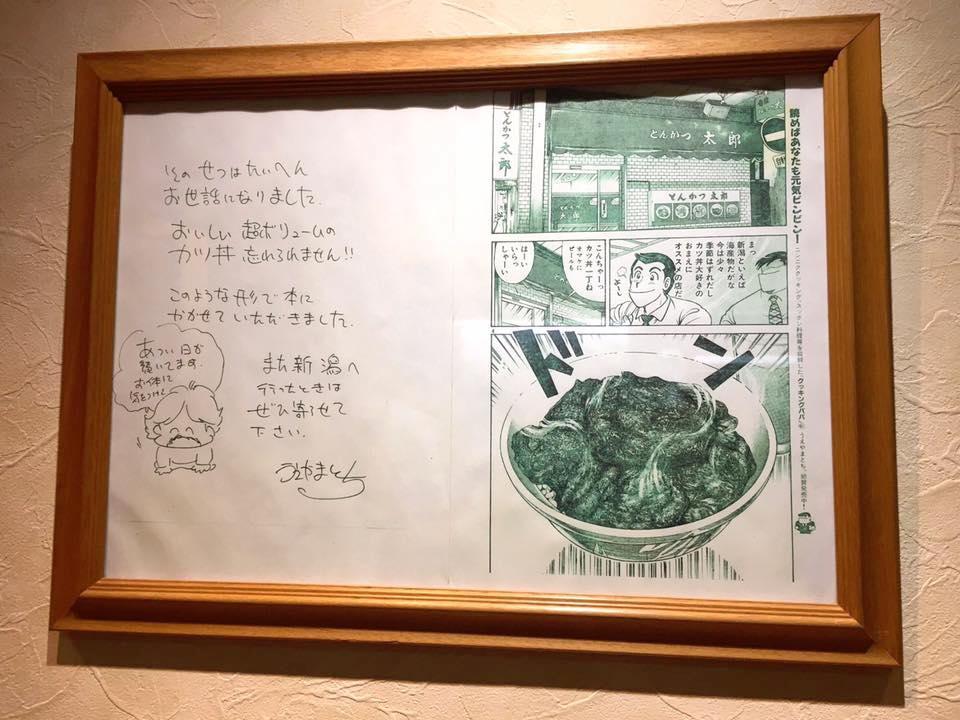 そのせつはたいへん
お世話になりました.
おいしい 超ボリュームの
カツ丼 忘れられません!!
このような形で本に
かかせていただきました.
あつい日が
続いてます.
お体に
気をつけて
また新潟へ
行ったときは
ぜひ寄らせて
下さい.
うえやまとち
眺めばあなたも元気ビンビン!
クッキングパパ
うえやまとち。
とんかつ 太郎
とんかつ 太郎
とんかつ 太郎
まっ
新潟といえば
海産物だがな
今は少々
季節はずれだし
カツ丼大好きの
おまえに
オススメの店だ
こんちゃーっ
カツ丼一丁ね
オマケに
ビールも
はーい
いらっ
しゃーい
ドン